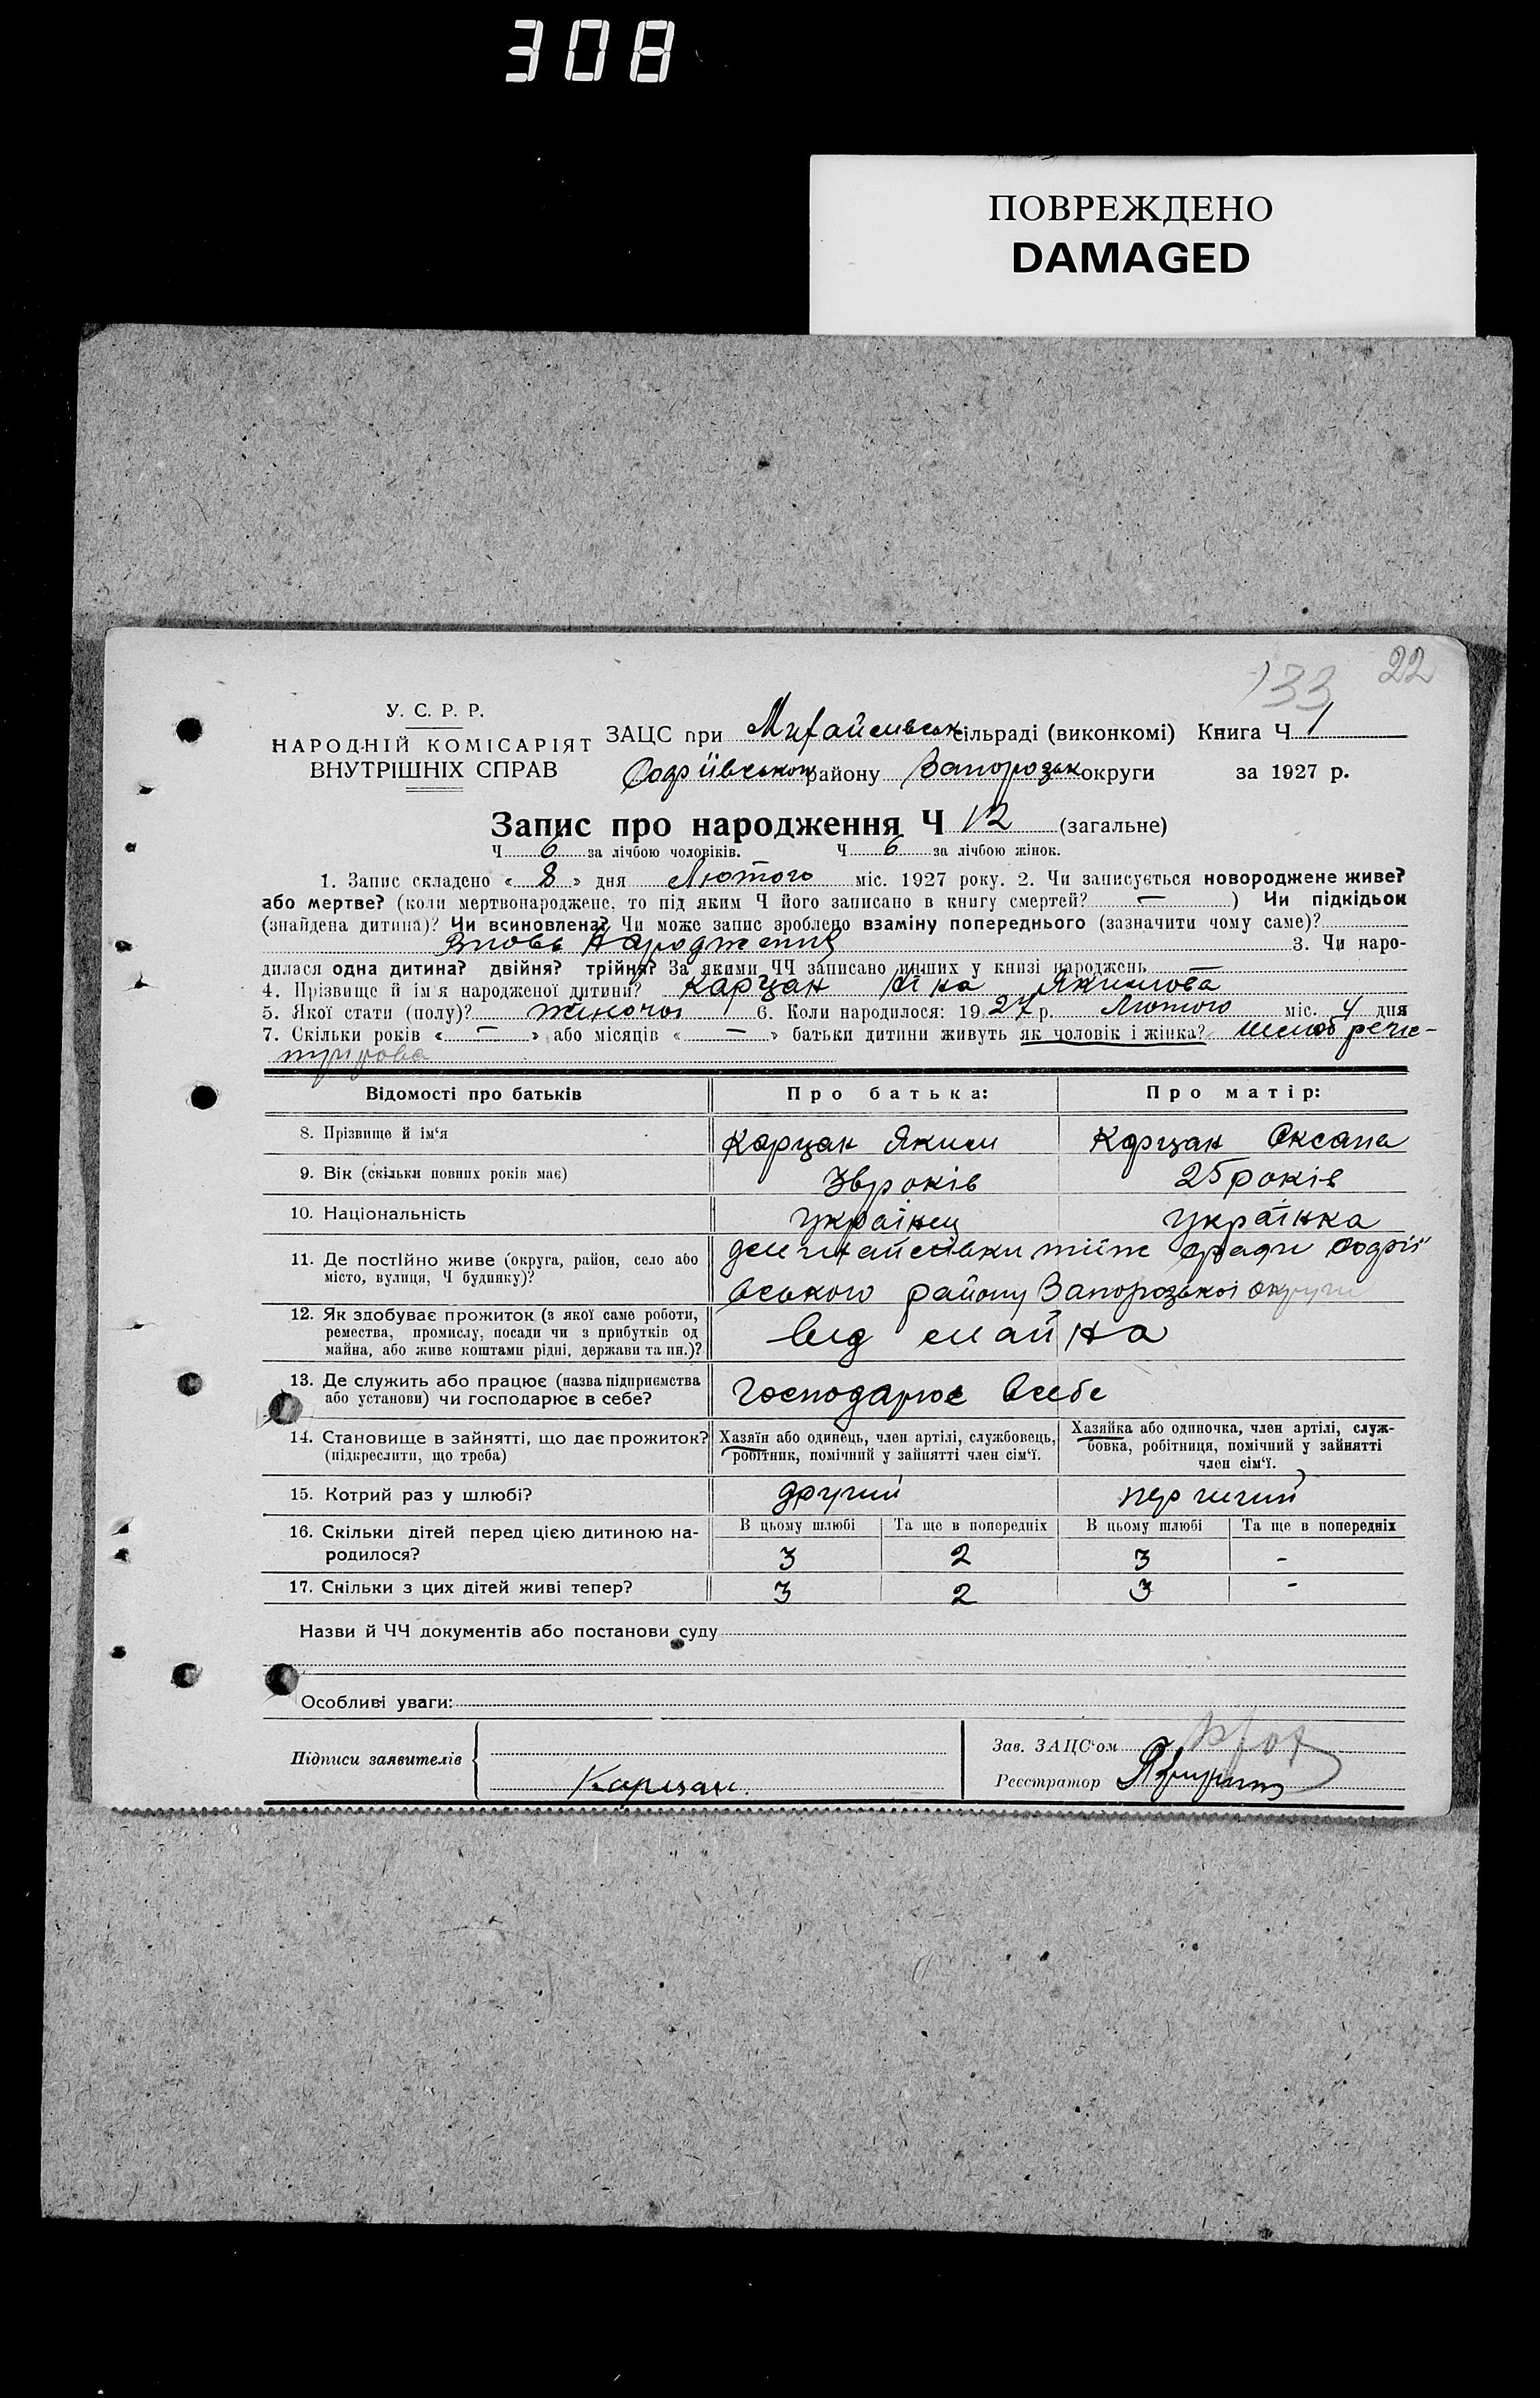 308
ПОВРЕЖДЕНО
DAMAGED
133 22
У. С. Р. Р.
НАРОДНІЙ КОМІСАРІЯТ
ВНУТРІШНІХ СПРАВ
ЗАЦС при сільраді (виконкомі) Книга Ч 1
району Запорозьк округи за 1927 р.
Запис про народження Ч 12 (загальне)
Ч 6 за лічбою чоловіків. Ч 6 за лічбою жінок.
1. Запис складено « 8 » дня Лютого міс. 1927 року. 2. Чи записується новороджене живе?
або мертве? (коли мертвонароджене, то під яким Ч його записано в книгу смертей? — ) Чи підкідьок
(знайдена дитина)? Чи всиновлена? Чи може запис зроблено взаміну попереднього (зазначити чому саме)?
Вновь народження 3. Чи наро-
дилася одна дитина? двійня? трійня? За якими ЧЧ записано инших у книзі народжень
4. Прізвище й ім'я народженої дитини? Карцан Якимова
5. Якої стати (полу)? жіночої 6. Коли народилося: 1927 р. Лютого міс. 4 дня
7. Скільки років « — » або місяців « — » батьки дитини живуть як чоловік і жінка? шлюб регис-
Відомості про батьків Про батька: Про матір:
8. Прізвище й ім'я Карцан Яким Карцан Оксана
9. Вік (скільки повних років має) років 25 років
10. Національність Українец Українка
11. Де постійно живе (округа, район, село або
місто, вулиця, Ч будинку)?
вського району Запорозької округи
12. Як здобуває прожиток (з якої саме роботи,
ремества, промислу, посади чи з прибутків од
майна, або живе коштами рідні, держави та ин.)? від майна
13. Де служить або працює (назва підприємства
або установи) чи господарює в себе? господарює всебе
14. Становище в зайнятті, що дає прожиток?
(підкреслити, що треба)
Хазяїн або одинець, член артілі, службовець,
робітник, помічний у зайнятті член сім'ї.
Хазяйка або одиночка, член артілі, служ-
бовка, робітниця, помічний у зайнятті
член сім'ї.
15. Котрий раз у шлюбі? другий первий
16. Скільки дітей перед цією дитиною на-
родилося?
В цьому шлюбі Та ще в попередніх В цьому шлюбі Та ще в попередніх
3 2 3 -
17. Скільки з цих дітей живі тепер? 3 2 3 -
Назви й ЧЧ документів або постанови суду
Особливі уваги:
Підписи заявителів Карцан.
Зав. ЗАЦС'ом
Реєстратор